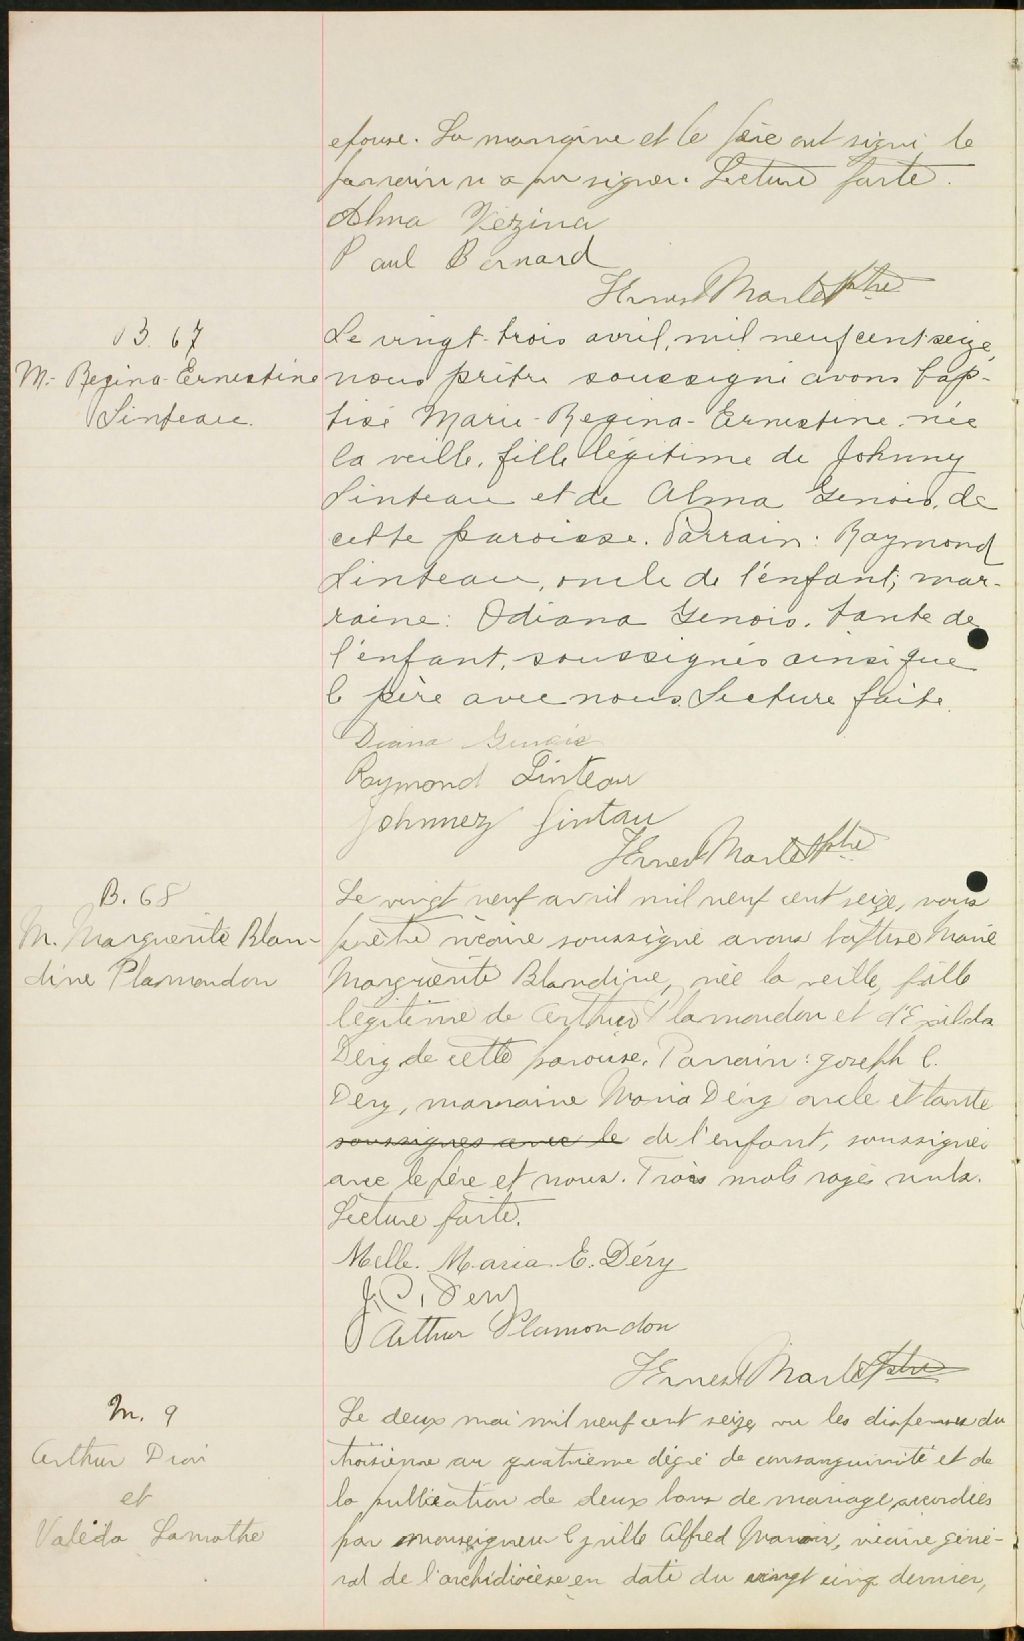 epouse. La marraine et le père ont signé, le
parrain n'a pu signer. Lecture faite.
Alma Vézina
Paul Bernard
J Ernest Martel Ptre
B. 67
M.- Regina-Ernestine
Linteau.
Le vingt-trois avril, mil neuf cent seize,
nous prêtre soussigné avons bap-
tisé Marie-Regina-Ernestine, née
la veille, fille légitime de Johnny
Linteau et de Alma Genois, de
cette paroisse. Parrain: Raymond
Linteau, oncle de l'enfant; mar-
raine: Odiana Genois, tante de
l'enfant, soussignés ainsi que
le père avec nous. Lecture faite.
Diana Genois
Raymond Linteau
Johnney Lintau
J Ernest Martel Ptre
B. 68
M. Marguerite Blan-
dine Plamondon
Le vingt neuf avril mil neuf cent seize, nous
prêtre vicaire soussigné avons baptisé Marie
Marguerite Blandine, née la veille, fille
légitime de Arthur Plamondon et d'Exilda
Déry de cette paroisse. Parrain: Joseph C.
Dery, marraine Maria Déry oncle et tante
soussignes avec le de l'enfant, soussignés
avec le père et nous. Trois mots rayés nuls.
Lecture faite.
Melle. Maria. E. Déry
J. C. Dery
Arthur Plamondon
J Ernest Martel Ptre
M. 9
Arthur
et
Valéda Lamothe
Le deux mai mil neuf cent seize, vu les dispenses du
troisième au quatrième dégré de consanguinité et de
la publication de deux bans de mariage, accordées
par monseigneur Cyrille Alfred Marois, vicaire géné-
ral de l'archidiocèse en date du vingt cinq dernier,